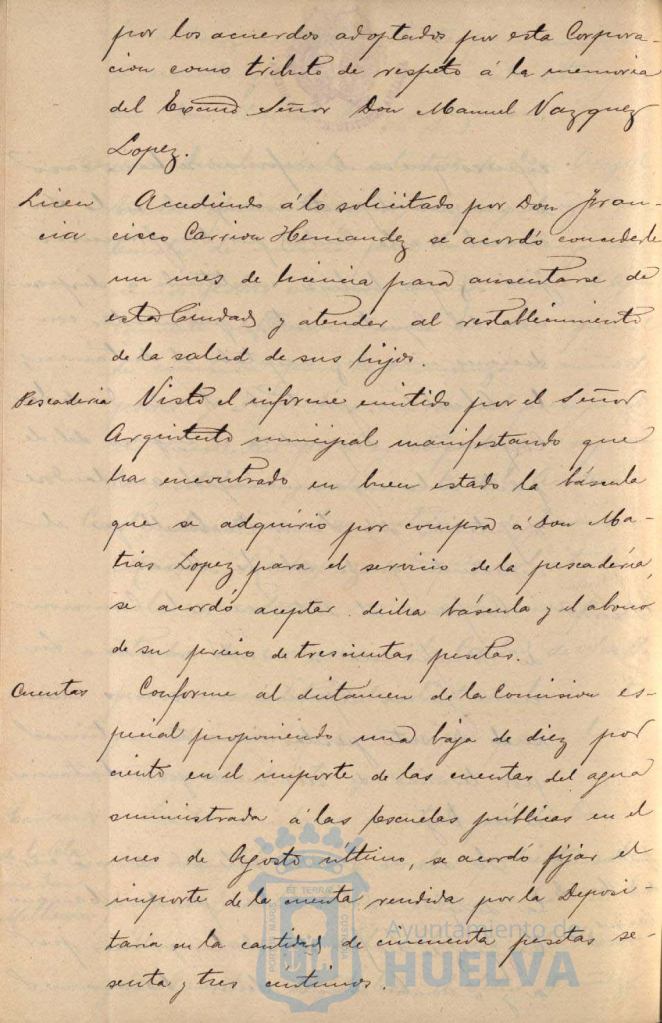 por los acuerdos adoptados por esta Corpora-
cion como tributo de respeto á la memoria
del Excmo Señor Don Manuel Vazquez
Lopez.
Licen
cia
Accediendo á lo solicitado por Don Fran-
cisco Carrion Hernandez se acordó concederle
un mes de licencia para ausentarse de
esta Ciudad y atender al restablecimiento
de la salud de sus hijos.
Pescaderia
Visto el informe emitido por el Señor
Arquitecto municipal manifestando que
ha encontrado en buen estado la báscula
que se adquirió por compra á Don Ma-
tias Lopez para el servicio de la pescadería,
se acordó aceptar dicha báscula y el abono
de su precio de trescientas pesetas.
Cuentas
Conforme al dictámen de la Comision es-
pecial proponiendo una baja de diez por
ciento en el importe de las cuentas del agua
suministrada á las Escuelas públicas en el
mes de Agosto último, se acordó fijar el
importe de la cuenta rendida por la Deposi-
taría en la cantidad de cincuenta pesetas se-
senta y tres centimos.
Ayuntamiento de
HUELVA